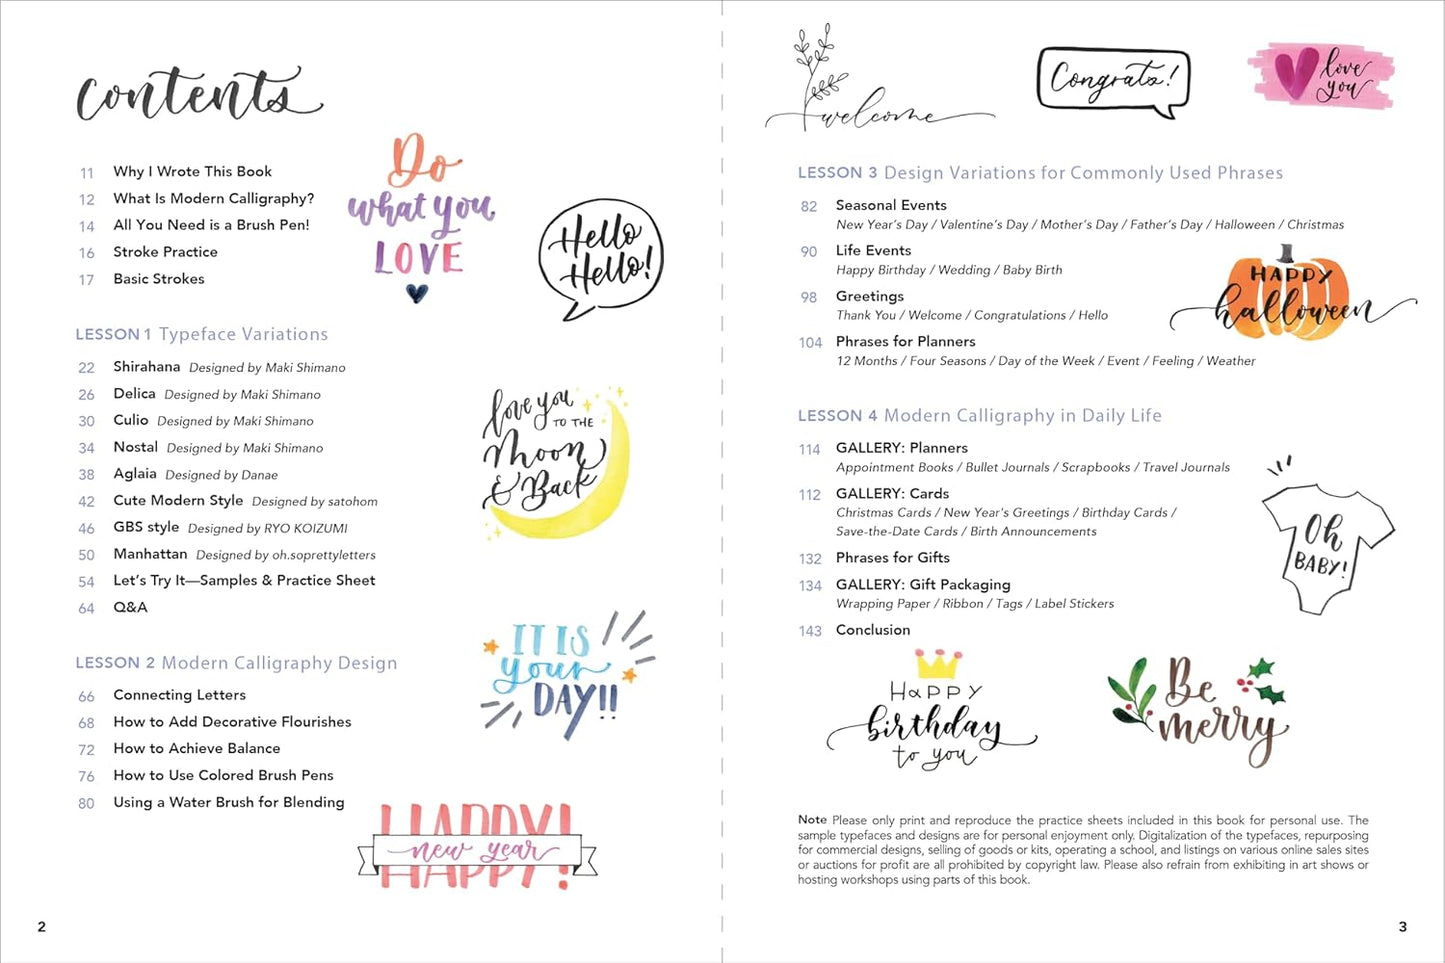 contents
11 Why I Wrote This Book
12 What Is Modern Calligraphy?
14 All You Need is a Brush Pen!
16 Stroke Practice
17 Basic Strokes
Do
what you
LOVE
Hello
Hello!
LESSON 1 Typeface Variations
22 Shirahana Designed by Maki Shimano
26 Delica Designed by Maki Shimano
30 Culio Designed by Maki Shimano
34 Nostal Designed by Maki Shimano
38 Aglaia Designed by Danae
42 Cute Modern Style Designed by satohom
46 GBS style Designed by RYO KOIZUMI
50 Manhattan Designed by oh.soprettyletters
54 Let's Try It—Samples & Practice Sheet
64 Q&A
love you
TO THE
Moon
& Back
LESSON 2 Modern Calligraphy Design
66 Connecting Letters
68 How to Add Decorative Flourishes
72 How to Achieve Balance
76 How to Use Colored Brush Pens
80 Using a Water Brush for Blending
IT IS
your
DAY!!
HAPPY!
new year
2
welcome
Congrats!
love
you
LESSON 3 Design Variations for Commonly Used Phrases
82 Seasonal Events
New Year's Day / Valentine's Day / Mother's Day / Father's Day / Halloween / Christmas
90 Life Events
Happy Birthday / Wedding / Baby Birth
98 Greetings
Thank You / Welcome / Congratulations / Hello
104 Phrases for Planners
12 Months / Four Seasons / Day of the Week / Event / Feeling / Weather
HAPPY
halloween
LESSON 4 Modern Calligraphy in Daily Life
114 GALLERY: Planners
Appointment Books / Bullet Journals / Scrapbooks / Travel Journals
112 GALLERY: Cards
Christmas Cards / New Year's Greetings / Birthday Cards /
Save-the-Date Cards / Birth Announcements
132 Phrases for Gifts
134 GALLERY: Gift Packaging
Wrapping Paper / Ribbon / Tags / Label Stickers
143 Conclusion
Oh
BABY!
HAPPY
birthday
to you
Be
merry
Note Please only print and reproduce the practice sheets included in this book for personal use. The
sample typefaces and designs are for personal enjoyment only. Digitalization of the typefaces, repurposing
for commercial designs, selling of goods or kits, operating a school, and listings on various online sales sites
or auctions for profit are all prohibited by copyright law. Please also refrain from exhibiting in art shows or
hosting workshops using parts of this book.
3